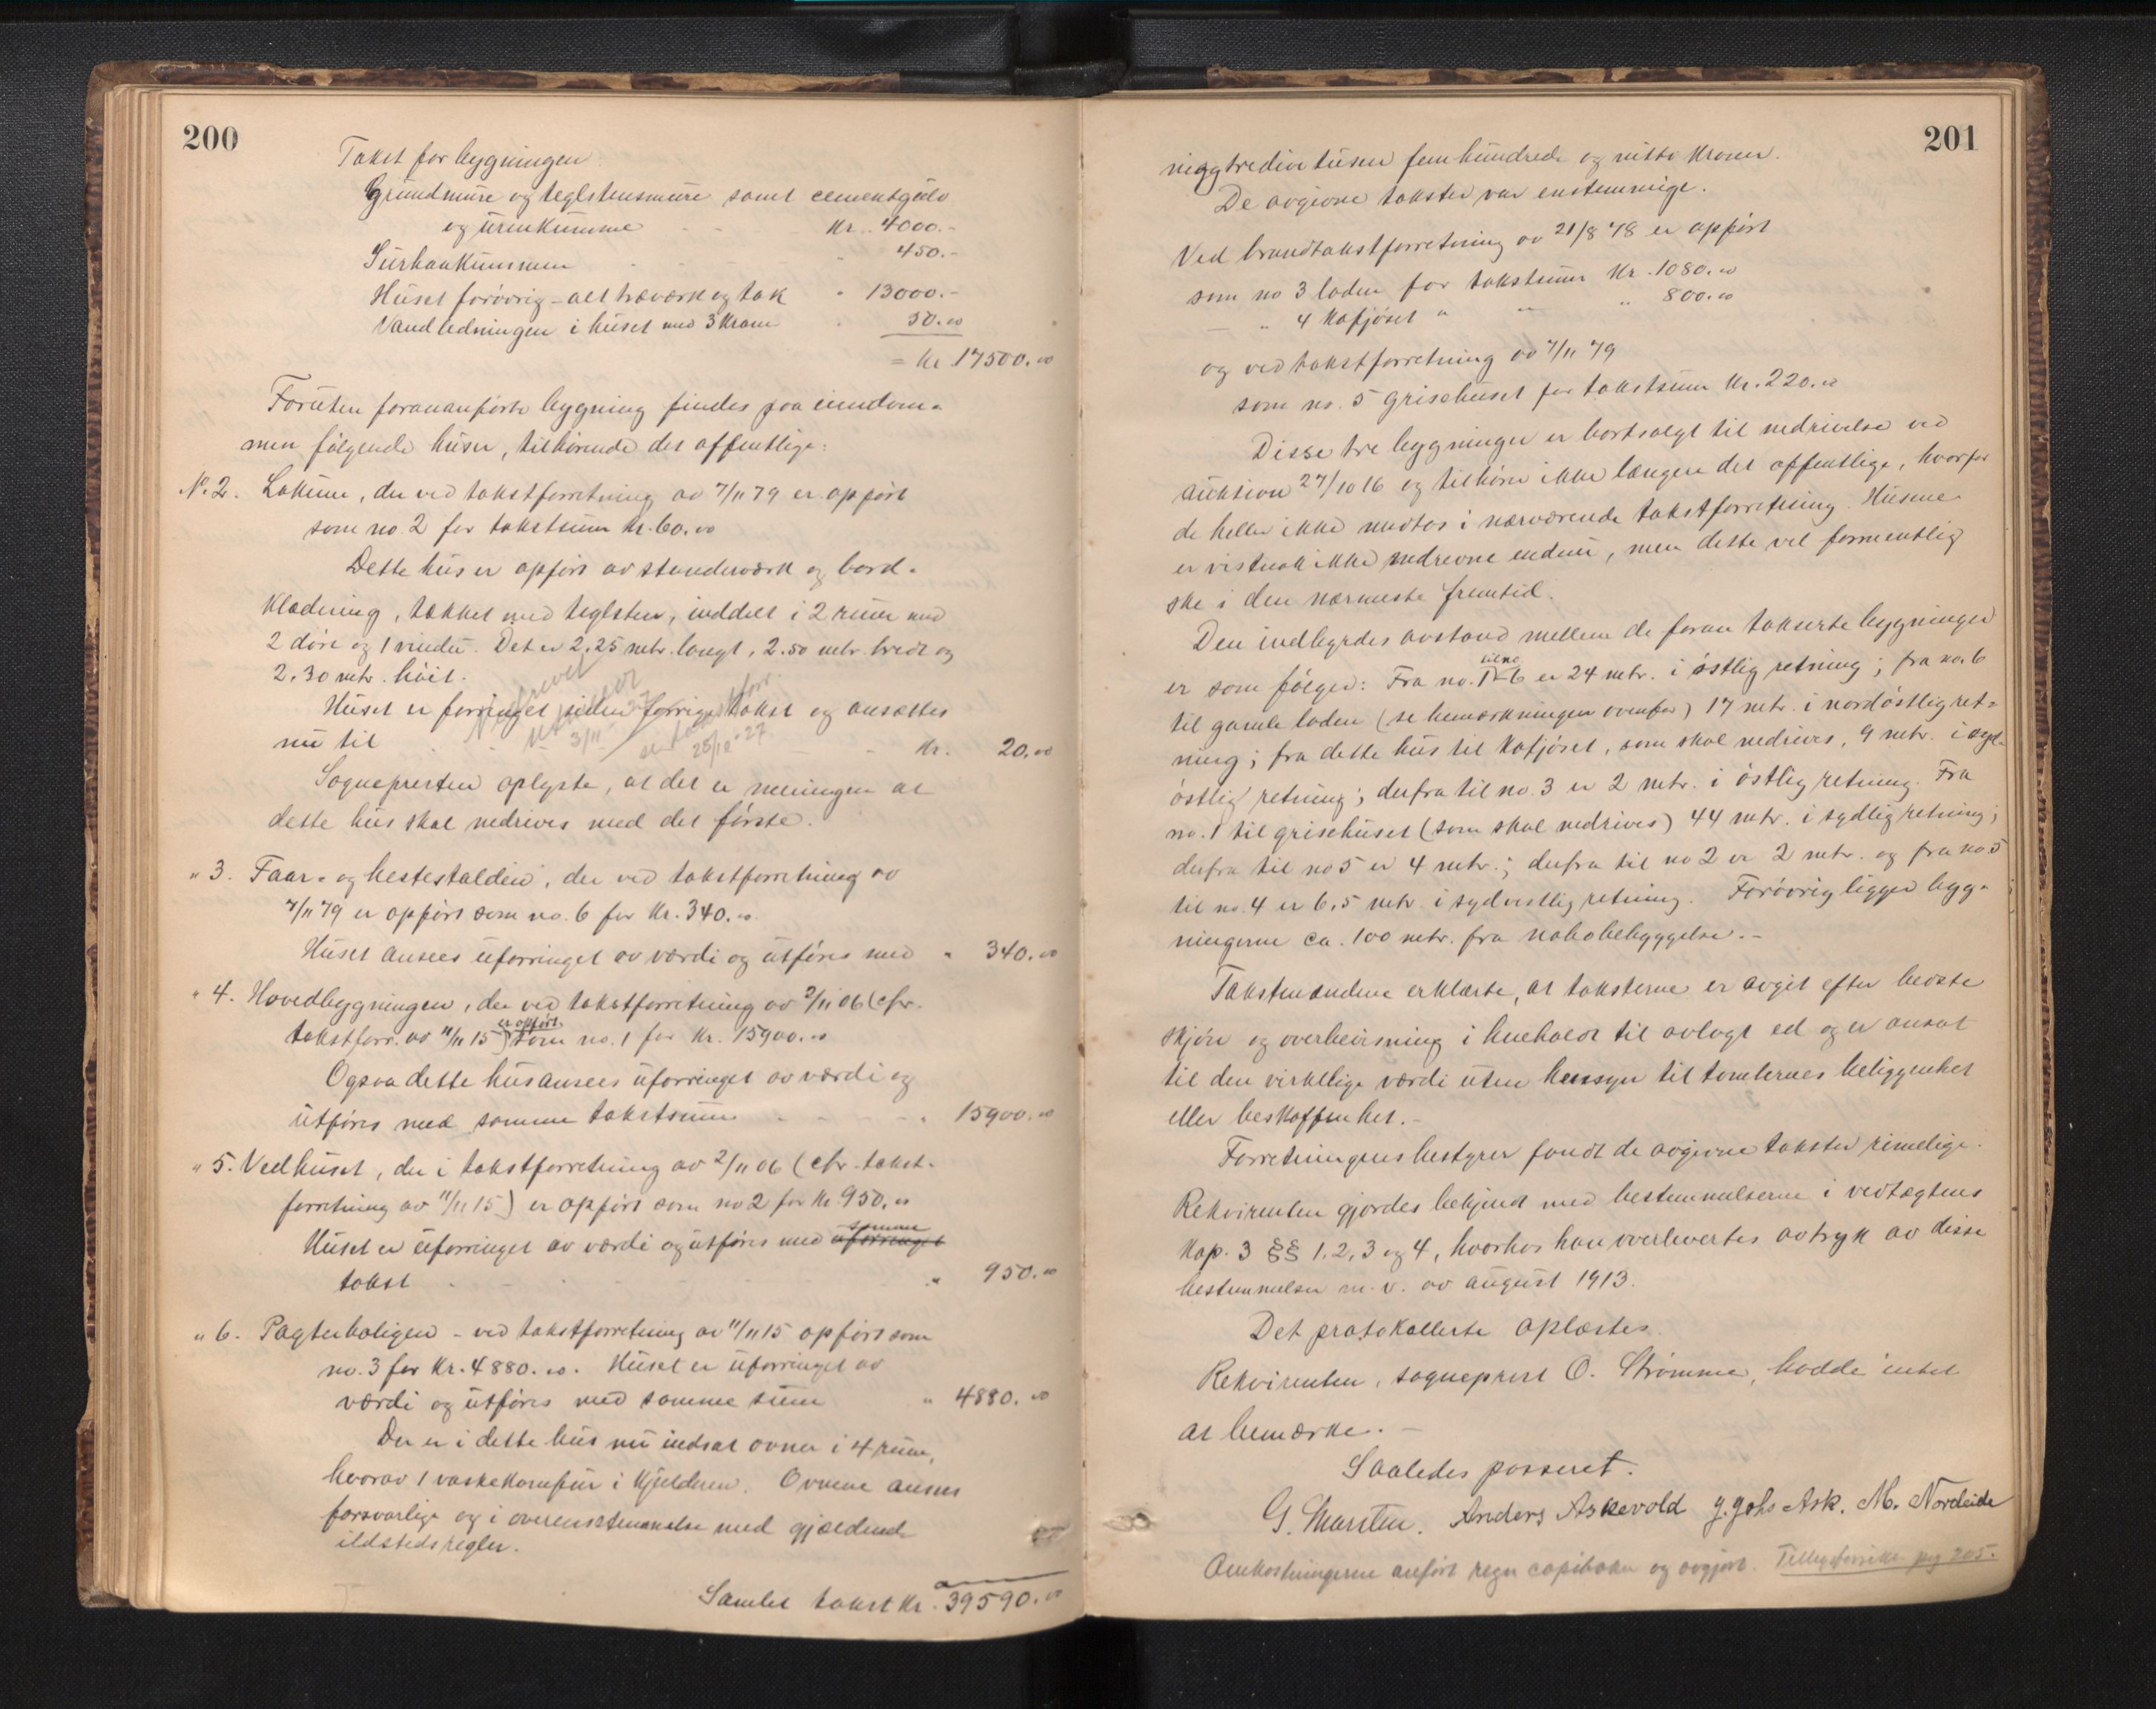 200
Takst for bygningen
Grundmure og teglstensmure samt cementgulv
og urinkumme - - Kr. 4000.-
Surhaakummen - - " 450.-
Huset forøvrig - alt træværk og tak " 13000.-
Vandledningen i huset med 3 kraner " 50.00
= Kr 17500.00
Foruten forananførte bygning findes paa eiendom-
men følgende huser, tilhørende det offentlige:
No. 2. Lokum, der ved takstforretning av 7/11 79 er opført
som no 2 for takstsum Kr. 60.00
Dette hus er opført av stenderværk og bord-
klædning, tækket med teglsten, inddelt i 2 rum med
2 døre og 1 vindu. Det er 2,25 metr. langt, 2.50 metr. bredt og
2.30 metr. høit.
Huset er forringet siden forrige takst og ansættes
nu til - - - Kr. 20.00
Nedrevet
3/11
25/10 27
Sognepresten oplyste, at det er meningen at
dette hus skal nedrives med det første.
" 3. Faar- og hestestalden, der ved takstforretning av
7/11 79 er opført som no. 6 for Kr. 340.00
Huset ansees uforringet av værdi og utføres med " 340.00
" 4. Hovedbygningen, der ved takstforretning av 2/11 06 (cfr.
takstforr. av 11/11 15) er opført som no. 1 for Kr. 15900.00
Ogsaa dette hus ansees uforringet av værdi og
utføres med samme takstsum - - - " 15900.00
" 5. Vedhuset, der i takstforretning av 2/11 06 (cfr. takst-
forretning av 11/11 15) er opført som no 2 for Kr 950.00
Huset er uforringet av værdi og utføres med uforringet samme
takst - - - " 950.00
" 6. Pagterboligen - ved takstforretning av 11/11 15 opført som
no. 3 for Kr. 4880.00. Huset er uforringet av
værdi og utføres med samme sum " 4880.00
Der er i dette hus nu indsat ovner i 4 rum,
hvorav 1 vaskekomfur i kjelderen. Ovnene ansees
forsvarlige og i overensstemmelse med gjældende
ildstedsregler.
Samlet takst Kr. 39590.00
201
niogtredive tusen fem hundrede og nitti kroner.
De avgivne takster var enstemmige.
Ved brandtakstforretning av 21/8 78 er opført
som no 3 laden for takstsum Kr. 1080.00
" 4 Kofjøset " " " 800.00
og ved takstforretning av 7/11 79
som no. 5 grisehuset for takstsum Kr. 220.00
Disse tre bygninger er bortsolgt til nedrivelse ved
auktion 27/10 16 og tilhører ikke længere det offentlige, hvorfor
de heller ikke medtas i nærværende takstforretning. Husene
er vistnok ikke nedrevne endnu, men dette vil formentlig
ske i den nærmeste fremtid.
Den indbyrdes avstand mellem de foran takserte bygninger
er som følger: Fra no. 1 til no 6 er 24 metr. i østlig retning; fra no. 6
til gamle laden (se bemærkningen ovenfor) 17 metr. i nordøstlig ret-
ning; fra dette hus til Kofjøset, som skal nedrives, 9 metr. i syd-
østlig retning; derfra til no. 3 er 2 metr. i østlig retning. Fra
no. 1 til grisehuset (som skal nedrives) 44 metr. i sydlig retning;
derfra til no 5 er 4 metr.; derfra til no 2 er 2 metr. og fra no 5
til no. 4 er 6,5 metr. i sydvestlig retning. Forøvrig ligger byg-
ningerne ca. 100 metr. fra nabobebyggelse.-
Takstmændene erklærte, at taksterne er avgit efter bedste
skjøn og overbevisning i henhold til avlagt ed og er ansat
til den virkelige værdi uten hensyn til tomternes beliggenhet
eller beskaffenhet.-
Forretningens bestyrer fandt de avgivne takster rimelige.
Rekvirenten gjordes bekjendt med bestemmelserne i vedtægtens
Kap. 3 §§ 1, 2, 3 og 4, hvorhos han overlevertes avtryk av disse
bestemmelser m. v. av august 1913.
Det protokollerte oplæstes.
Rekvirenten, sogneprest O. Strømme, hadde intet
at bemærke.-
Saaledes passeret.
G. Marsten. Anders Askevold J. Johs Ask. M. Nordeide
Omkostningerne anført regn copiboken og avgjort. Tillægsforretn. pag 205.